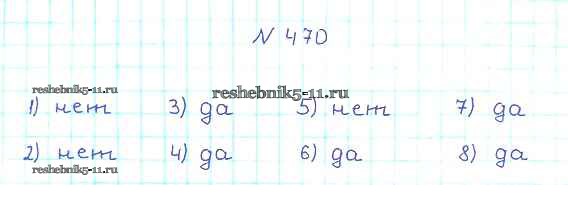 N 470
reshebnik5-11.ru
reshebnik5-11.ru
1) нет 3) да 5) нет 7) да
2) нет 4) да 6) да 8) да
reshebnik5-11.ru